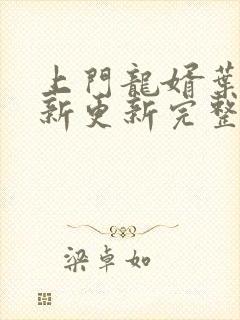 上門龍婿葉
新更新完整
梁卓如